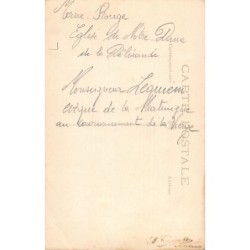 Morne Rouge
Eglise de Notre Dame
de la Délivrande
Monseigneur Lequien
évêque de la Martinique
au couronnement de la Vierge
CARTE POSTALE